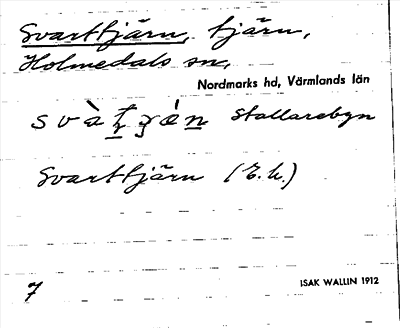 Svarttjärn, tjärn,
Holmedals sn,
Nordmarks hd, Värmlands län
Stallarebyn
Svarttjärn (E.k.)
7
ISAK WALLIN 1912